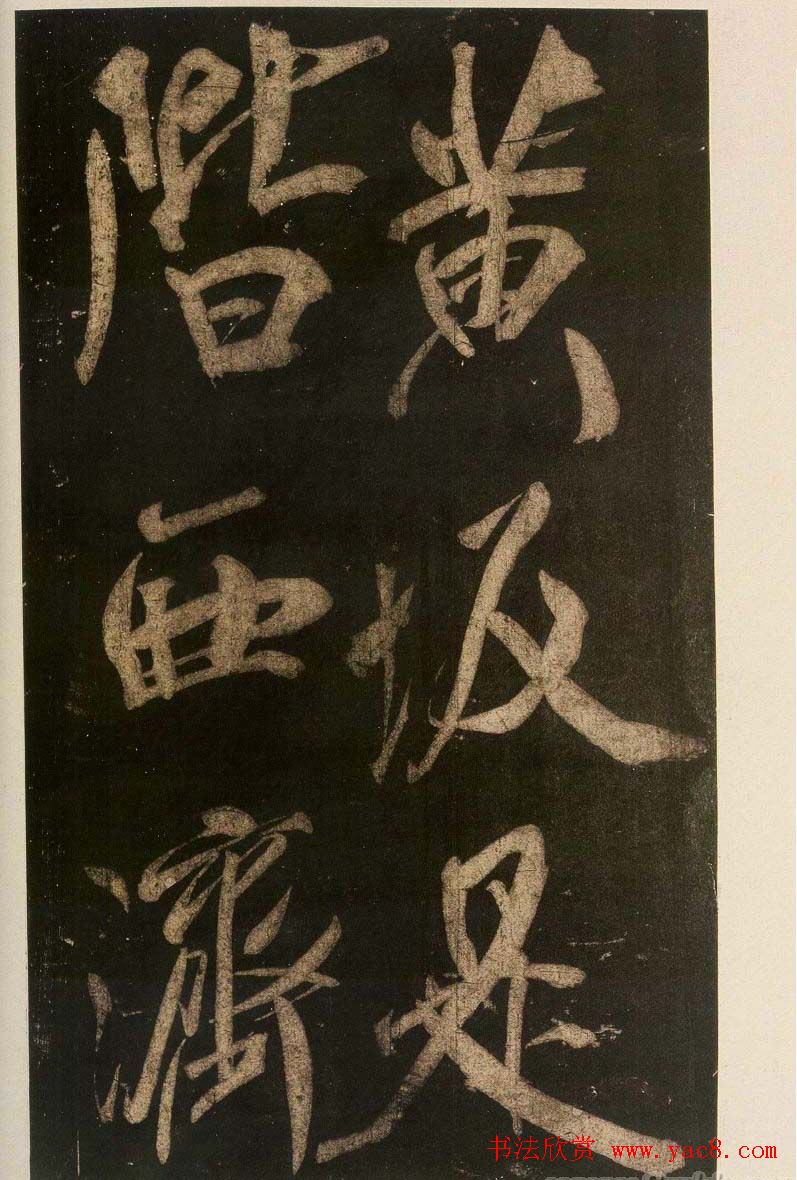 黄坂是
階西濟
书法欣赏 www.yac8.com